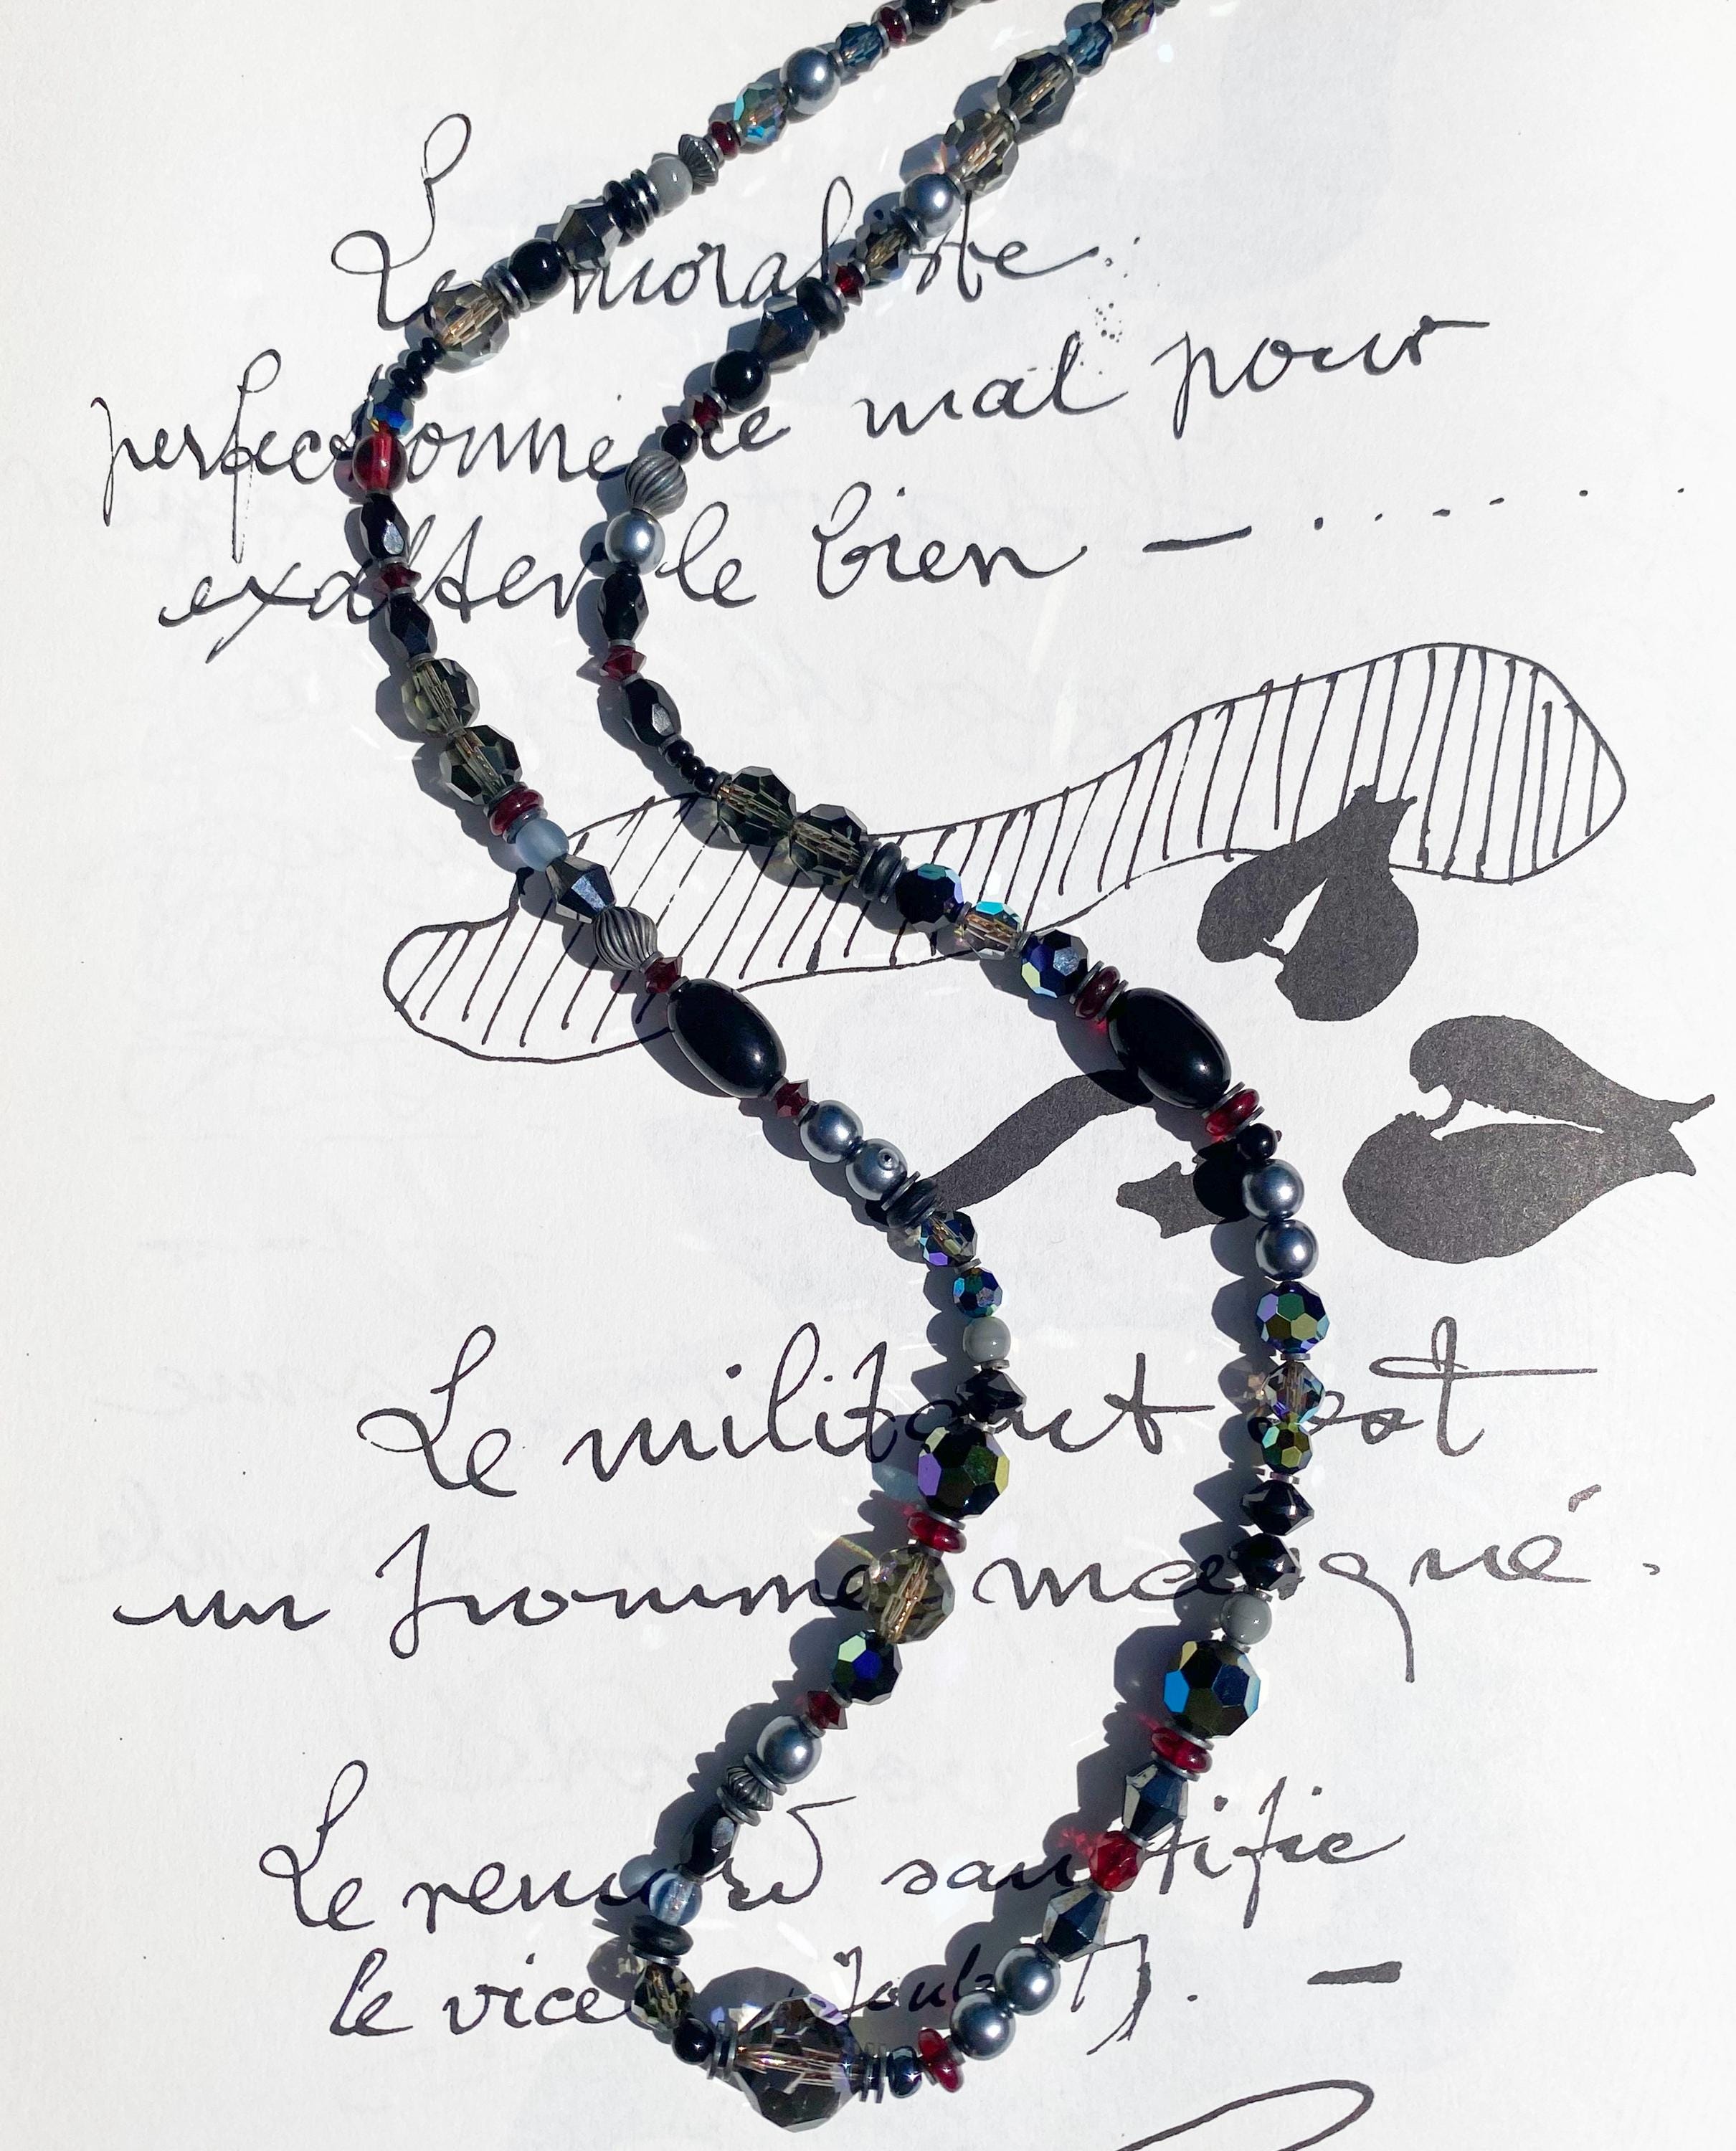 Le moraliste
perfectionne le mal pour
exalter le bien — ......
Le militant est
un homme masqué.
Le sanctifie
le vice (Joubert). —